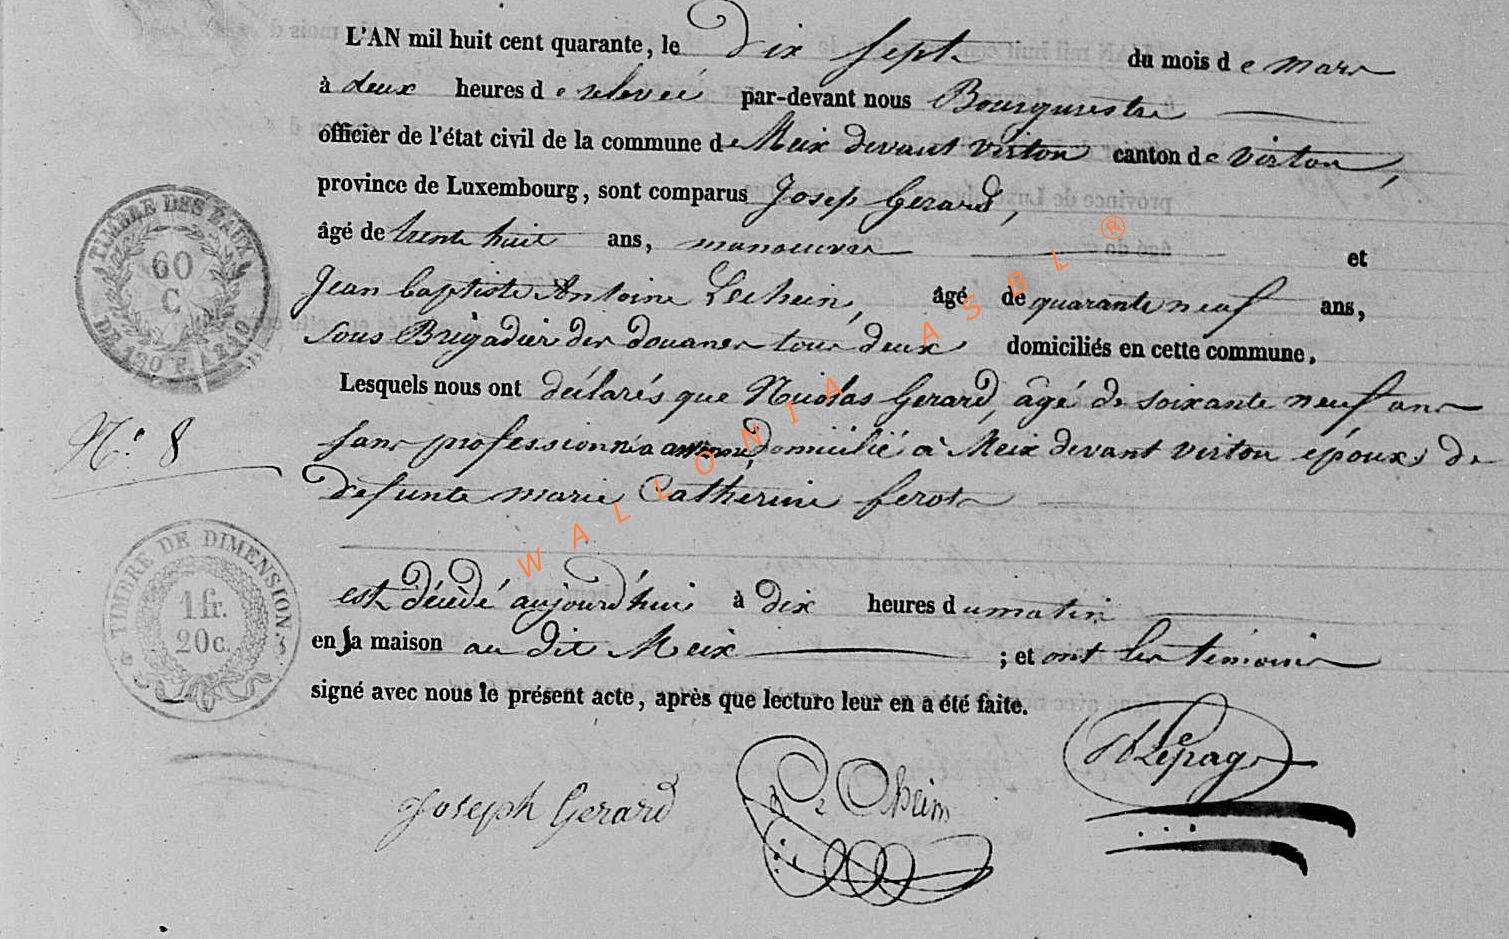 L'AN mil huit cent quarante, le Dix sept du mois de mars
à deux heures de relevée par-devant nous Bourgmestre
officier de l'état civil de la commune de Meix devant virton canton de virton,
province de Luxembourg, sont comparus Josep Gerard,
âgé de trente huit ans, manoeuvre et
Jean baptiste Antoine Lechein, âgé de quarante neuf ans,
sous Brigadier des douanes tous deux domiciliés en cette commune.
Lesquels nous ont déclarés que Nicolas Gerard, âgé de soixante neuf ans
N.o 8
sans profession né a domicilié à Meix devant virton époux de
defunte marie Catherine ferot
est décédé aujourd'hui à dix heures du matin
en sa maison au dit Meix ; et ont les témoins
signé avec nous le présent acte, après que lecture leur en a été faite.
Joseph Gerard
Lepage
TIMBRE DES
60
C
TIMBRE DE DIMENSION.
1 fr.
20 c.
WALLONIA ASBL ®